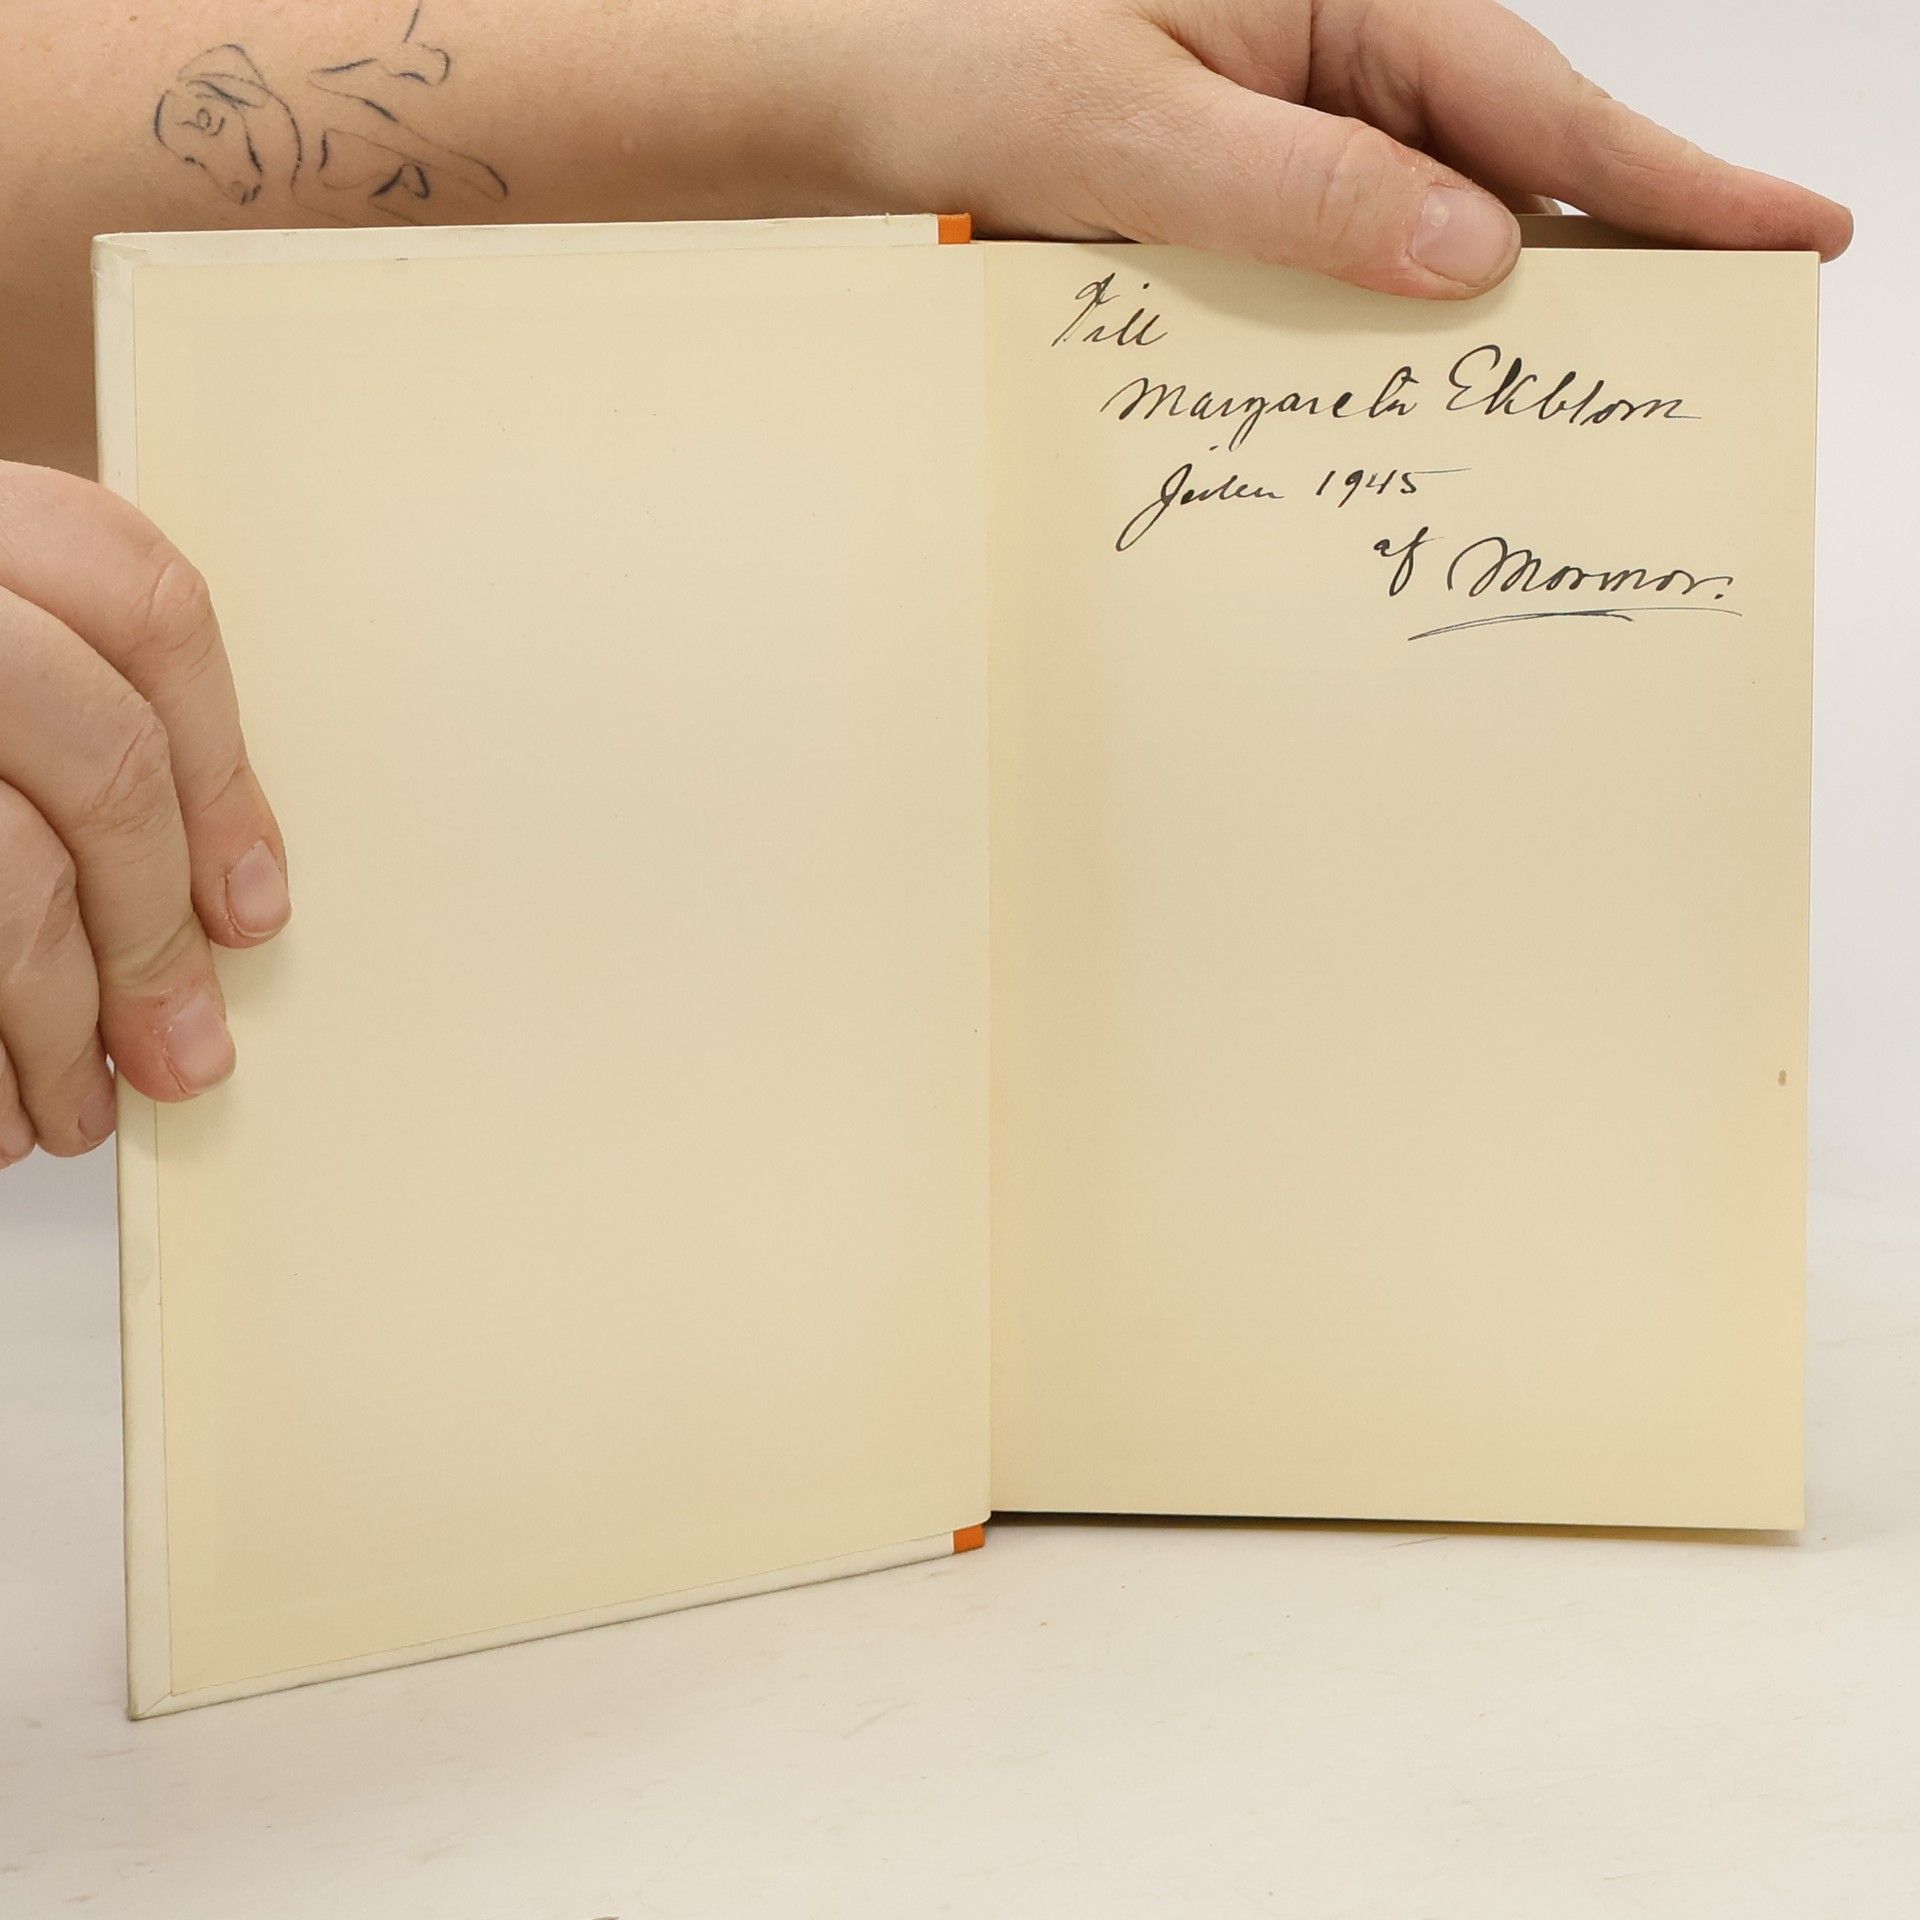 Till
Margareta Ekblom
Julen 1945
af Mormor.